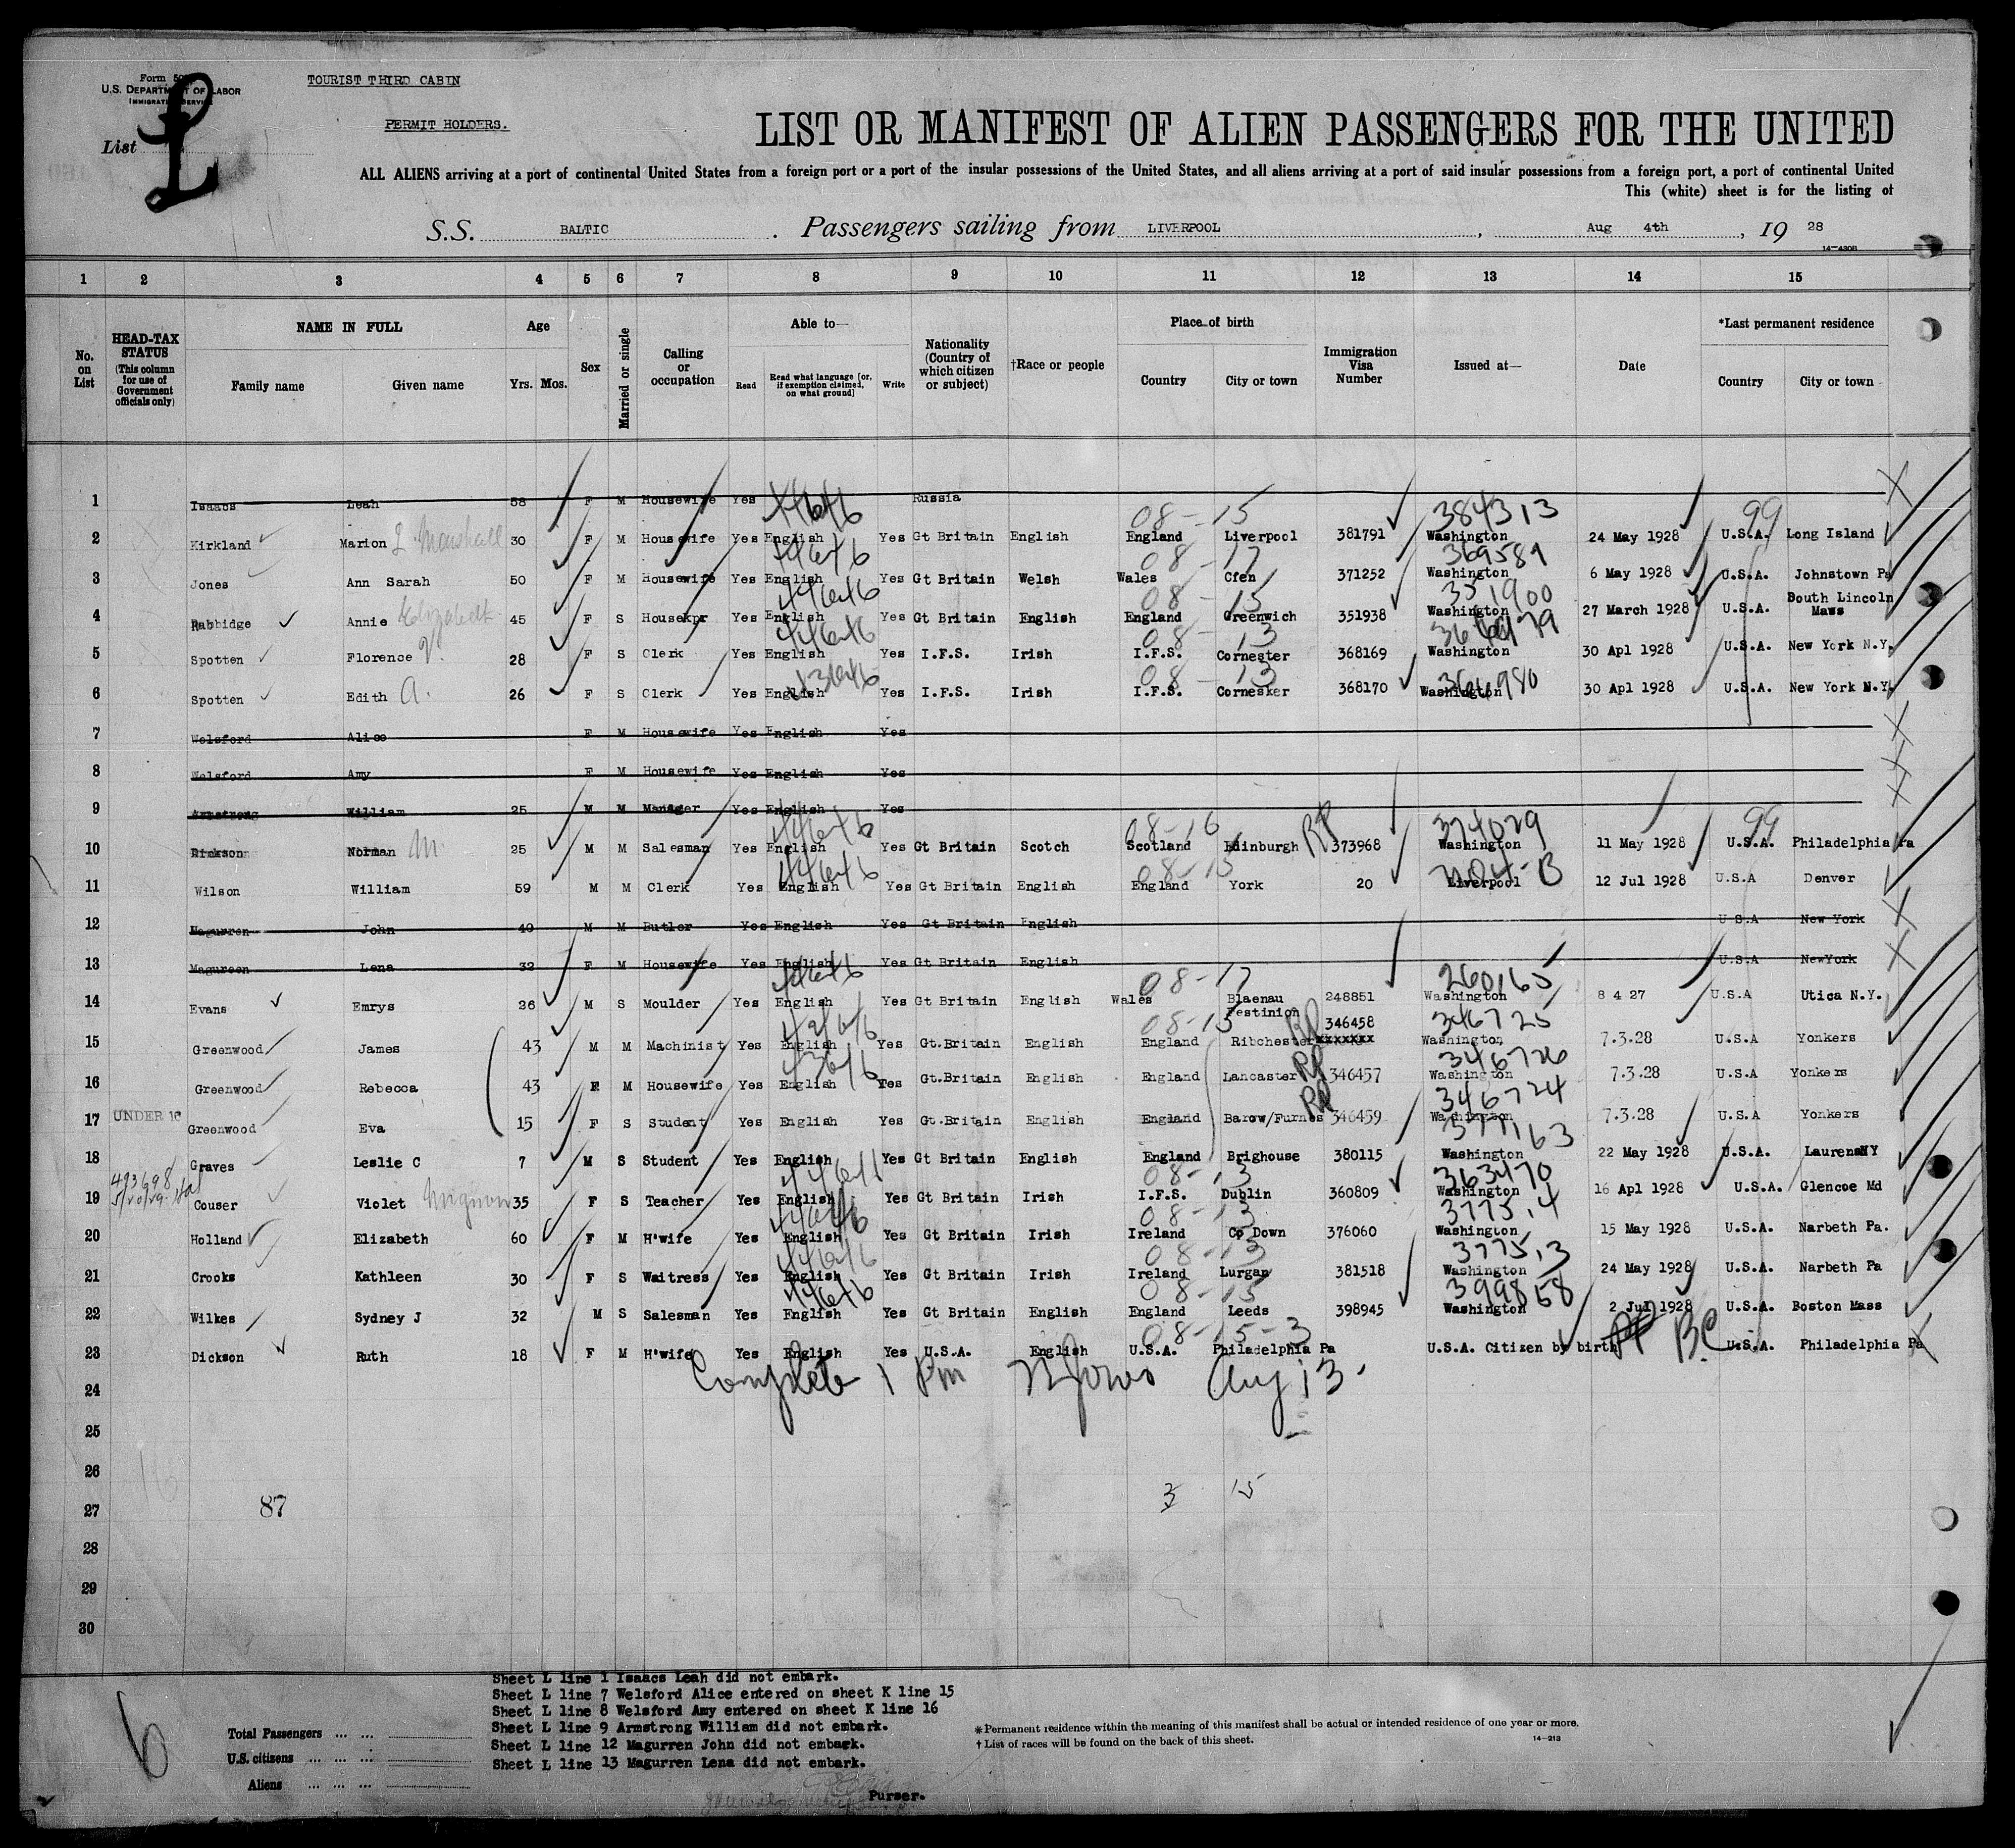 Form 50
U.S. DEPARTMENT OF LABOR
IMMIGRATION SERVICE
TOURIST THIRD CABIN
PERMIT HOLDERS.
List L
LIST OR MANIFEST OF ALIEN PASSENGERS FOR THE UNITED
ALL ALIENS arriving at a port of continental United States from a foreign port or a port of the insular possessions of the United States, and all aliens arriving at a port of said insular possessions from a foreign port, a port of continental United
This (white) sheet is for the listing of
S.S. BALTIC. Passengers sailing from LIVERPOOL, Aug 4th, 19 28
14-430B
1 2 3 4 5 6 7 8 9 10 11 12 13 14 15
No. on List
HEAD-TAX STATUS (This column for use of Government officials only)
NAME IN FULL
Family name Given name
Age
Yrs. Mos.
Sex
Married or single
Calling or occupation
Able to—
Read Read what language [or, if exemption claimed, on what ground] Write
Nationality (Country of which citizen or subject)
†Race or people
Place of birth
Country City or town
Immigration Visa Number
Issued at—
Date
*Last permanent residence
Country City or town
1 Isaacs Leah 58 F M Housewife Yes Russia
44646 08-15 384313 99
2 Kirkland Marion L Marshall 30 F M Housewife Yes English Yes Gt Britain English England Liverpool 381791 Washington 24 May 1928 U.S.A. Long Island
44646 08-17 369589
3 Jones Ann Sarah 50 F M Housewife Yes English Yes Gt Britain Welsh Wales Cfen 371252 Washington 6 May 1928 U.S.A. Johnstown Pa
44646 08-15 351900
4 Rabbidge Annie Elizabeth 45 F S Housekpr Yes English Yes Gt Britain English England Greenwich 351938 Washington 27 March 1928 U.S.A. South Lincoln Mass
44646 08-13
5 Spotten Florence V. 28 F S Clerk Yes English Yes I.F.S. Irish I.F.S. Cornester 368169 Washington 30 Apl 1928 U.S.A. New York N.Y.
43646 08-13 366980
6 Spotten Edith A. 26 F S Clerk Yes English Yes I.F.S. Irish I.F.S. Cornesker 368170 Washington 30 Apl 1928 U.S.A. New York N.Y.
7 Welsford Alice F M Housewife Yes English Yes
8 Welsford Amy F M Housewife Yes English Yes
9 Armstrong William 25 M M Manager Yes English Yes
44646 08-16 RP 374029 99
10 Dickson Norman M 25 M M Salesman Yes English Yes Gt Britain Scotch Scotland Edinburgh 373968 Washington 11 May 1928 U.S.A. Philadelphia Pa
44646 08-15
11 Wilson William 59 M M Clerk Yes English Yes Gt Britain English England York 20 Liverpool 12 Jul 1928 U.S.A Denver
12 Magurren John 40 M M Butler Yes English Yes Gt Britain English U.S.A New York
13 Magureen Lena 32 F M Housewife Yes English Yes Gt Britain English U.S.A NewYork
44646 08-17 260165
14 Evans Emrys 26 M S Moulder Yes English Yes Gt Britain English Wales Blaenau Festinion 248851 Washington 8 4 27 U.S.A Utica N.Y.
08-15 RP 346725
15 Greenwood James 43 M M Machinist Yes English Yes Gt.Britain English England Ribchester 346458 xxxxxxx Washington 7.3.28 U.S.A Yonkers
RP 346726
16 Greenwood Rebecca 43 F M Housewife Yes English Yes Gt.Britain English England Lancaster 346457 Washington 7.3.28 U.S.A Yonkers
RP 346724
17 UNDER 16 Greenwood Eva 15 F S Student Yes English Yes Gt.Britain English England Barow/Furnes 346459 Washington 7.3.28 U.S.A Yonkers
377163
18 Graves Leslie C 7 M S Student Yes English Yes Gt Britain English England Brighouse 380115 Washington 22 May 1928 U.S.A. LaurensNY
493698 08-13 363470
19 Couser Violet Mignon 35 F S Teacher Yes English Yes Gt Britain Irish I.F.S. Dublin 360809 Washington 16 Apl 1928 U.S.A. Glencoe Md
44646 08-13 377514
20 Holland Elizabeth 60 F M H'wife Yes English Yes Gt Britain Irish Ireland Co Down 376060 Washington 15 May 1928 U.S.A. Narbeth Pa.
44646 08-13 377513
21 Crooks Kathleen 30 F S Waitress Yes English Yes Gt Britain Irish Ireland Lurgan 381518 Washington 24 May 1928 U.S.A. Narbeth Pa
44646 08-15 399858
22 Wilkes Sydney J 32 M S Salesman Yes English Yes Gt Britain English England Leeds 398945 Washington 2 Jul 1928 U.S.A. Boston Mass
08-15-3 BC
23 Dickson Ruth 18 F M H'wife Yes English Yes U.S.A. English U.S.A. Philadelphia Pa U.S.A. Citizen by birth U.S.A. Philadelphia Pa
24 Complete 1 Pm N Jones Aug 13.
25
26
3 15
27 87
28
29
30
Sheet L line 1 Isaacs Leah did not embark.
Sheet L line 7 Welsford Alice entered on sheet K line 15
Sheet L line 8 Welsford Amy entered on sheet K line 16
Sheet L line 9 Armstrong William did not embark.
Sheet L line 12 Magurren John did not embark.
Sheet L line 13 Magurren Lena did not embark.
6
Total Passengers
U.S. citizens
Aliens
Purser.
*Permanent residence within the meaning of this manifest shall be actual or intended residence of one year or more.
† List of races will be found on the back of this sheet.
14-213